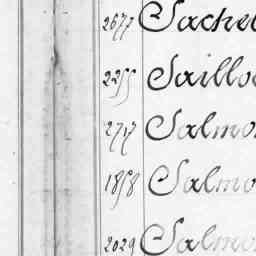 2677 Sache
2255 Saillo
2717 Salmo
1858 Salmo
2029 Salmo